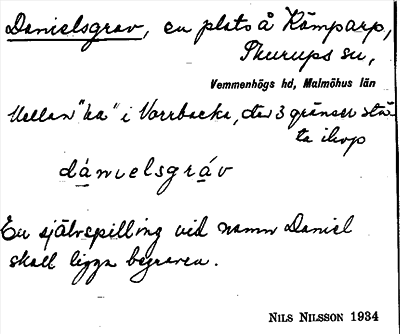 Danielsgrav, en plats å Kämparp,
Skurups sn,
Vemmenhögs hd, Malmöhus län
Mellan "ka" i Varrbacka, där 3 gränser stö-
ta ihop
dánielsgráv
En självspilling vid namn Daniel
skall ligga begraven.
NILS NILSSON 1934